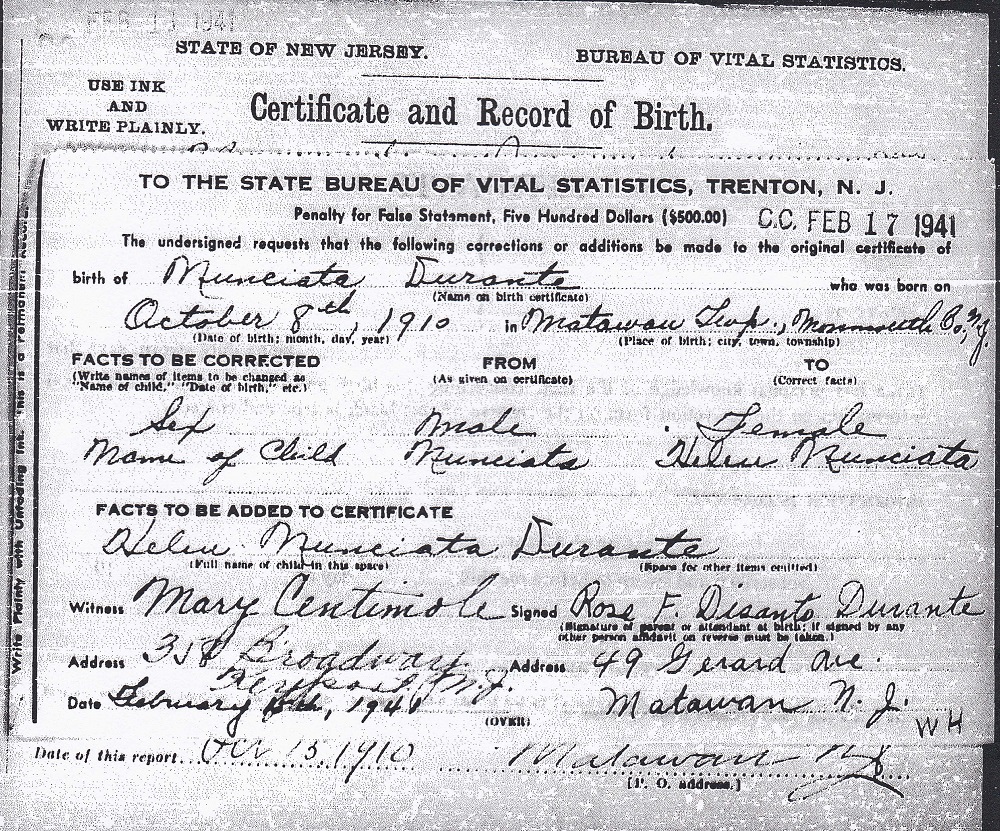 FEB 13 1941
STATE OF NEW JERSEY. BUREAU OF VITAL STATISTICS.
USE INK
AND
WRITE PLAINLY.
Certificate and Record of Birth.
TO THE STATE BUREAU OF VITAL STATISTICS, TRENTON, N. J.
Penalty for False Statement, Five Hundred Dollars ($500.00) C.C. FEB 17 1941
The undersigned requests that the following corrections or additions be made to the original certificate of
birth of Nunciata Durante who was born on
(Name on birth certificate)
October 8th, 1910 in Matawan Twp., Monmouth Co., N.J.
(Date of birth; month, day, year) (Place of birth; city, town, township)
FACTS TO BE CORRECTED FROM TO
(Write names of items to be changed as (As given on certificate) (Correct facts)
"Name of child," "Date of birth," etc.)
Sex Male Female
Name of Child Nunciata Helen Nunciata
FACTS TO BE ADDED TO CERTIFICATE
Helen Nunciata Durante
(Full name of child in this space) (Space for other items omitted)
Witness Mary Centimole Signed Rose F. Disanto Durante
(Signature of parent or attendant at birth; if signed by any
other person affidavit on reverse must be taken.)
Address 358 Broadway Address 49 Gerard Ave.
Keyport, N.J.
Date February 10th, 1941 Matawan N. J.
(OVER) WH
Date of this report. Oct 15, 1910 Matawan NJ
[P. O. address.]
Write Plainly with Unfading Ink. This is a Permanent Record.